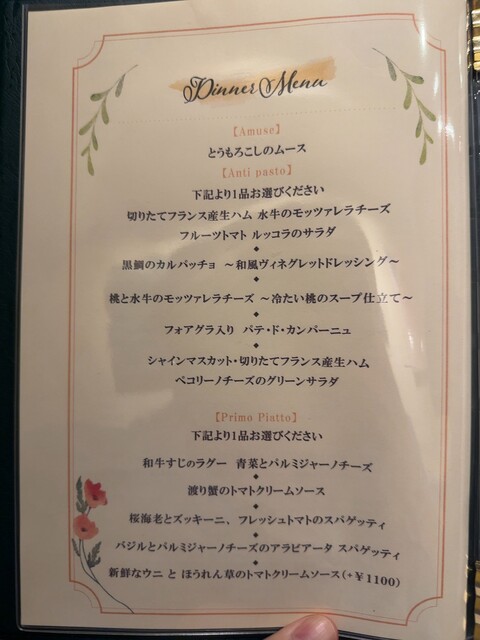 Dinner Menu
【Amuse】
とうもろこしのムース
【Anti pasto】
下記より1品お選びください
切りたてフランス産生ハム 水牛のモッツァレラチーズ
フルーツトマト ルッコラのサラダ
◆
黒鯛のカルパッチョ ～和風ヴィネグレットドレッシング～
◆
桃と水牛のモッツァレラチーズ ～冷たい桃のスープ仕立て～
◆
フォアグラ入り パテ・ド・カンパーニュ
◆
シャインマスカット・切りたてフランス産生ハム
ペコリーノチーズのグリーンサラダ
【Primo Piatto】
下記より1品お選びください
和牛すじのラグー 青菜とパルミジャーノチーズ
◆
渡り蟹のトマトクリームソース
◆
桜海老とズッキーニ、フレッシュトマトのスパゲッティ
◆
バジルとパルミジャーノチーズのアラビアータ スパゲッティ
◆
新鮮なウニ と ほうれん草のトマトクリームソース(+￥1100)